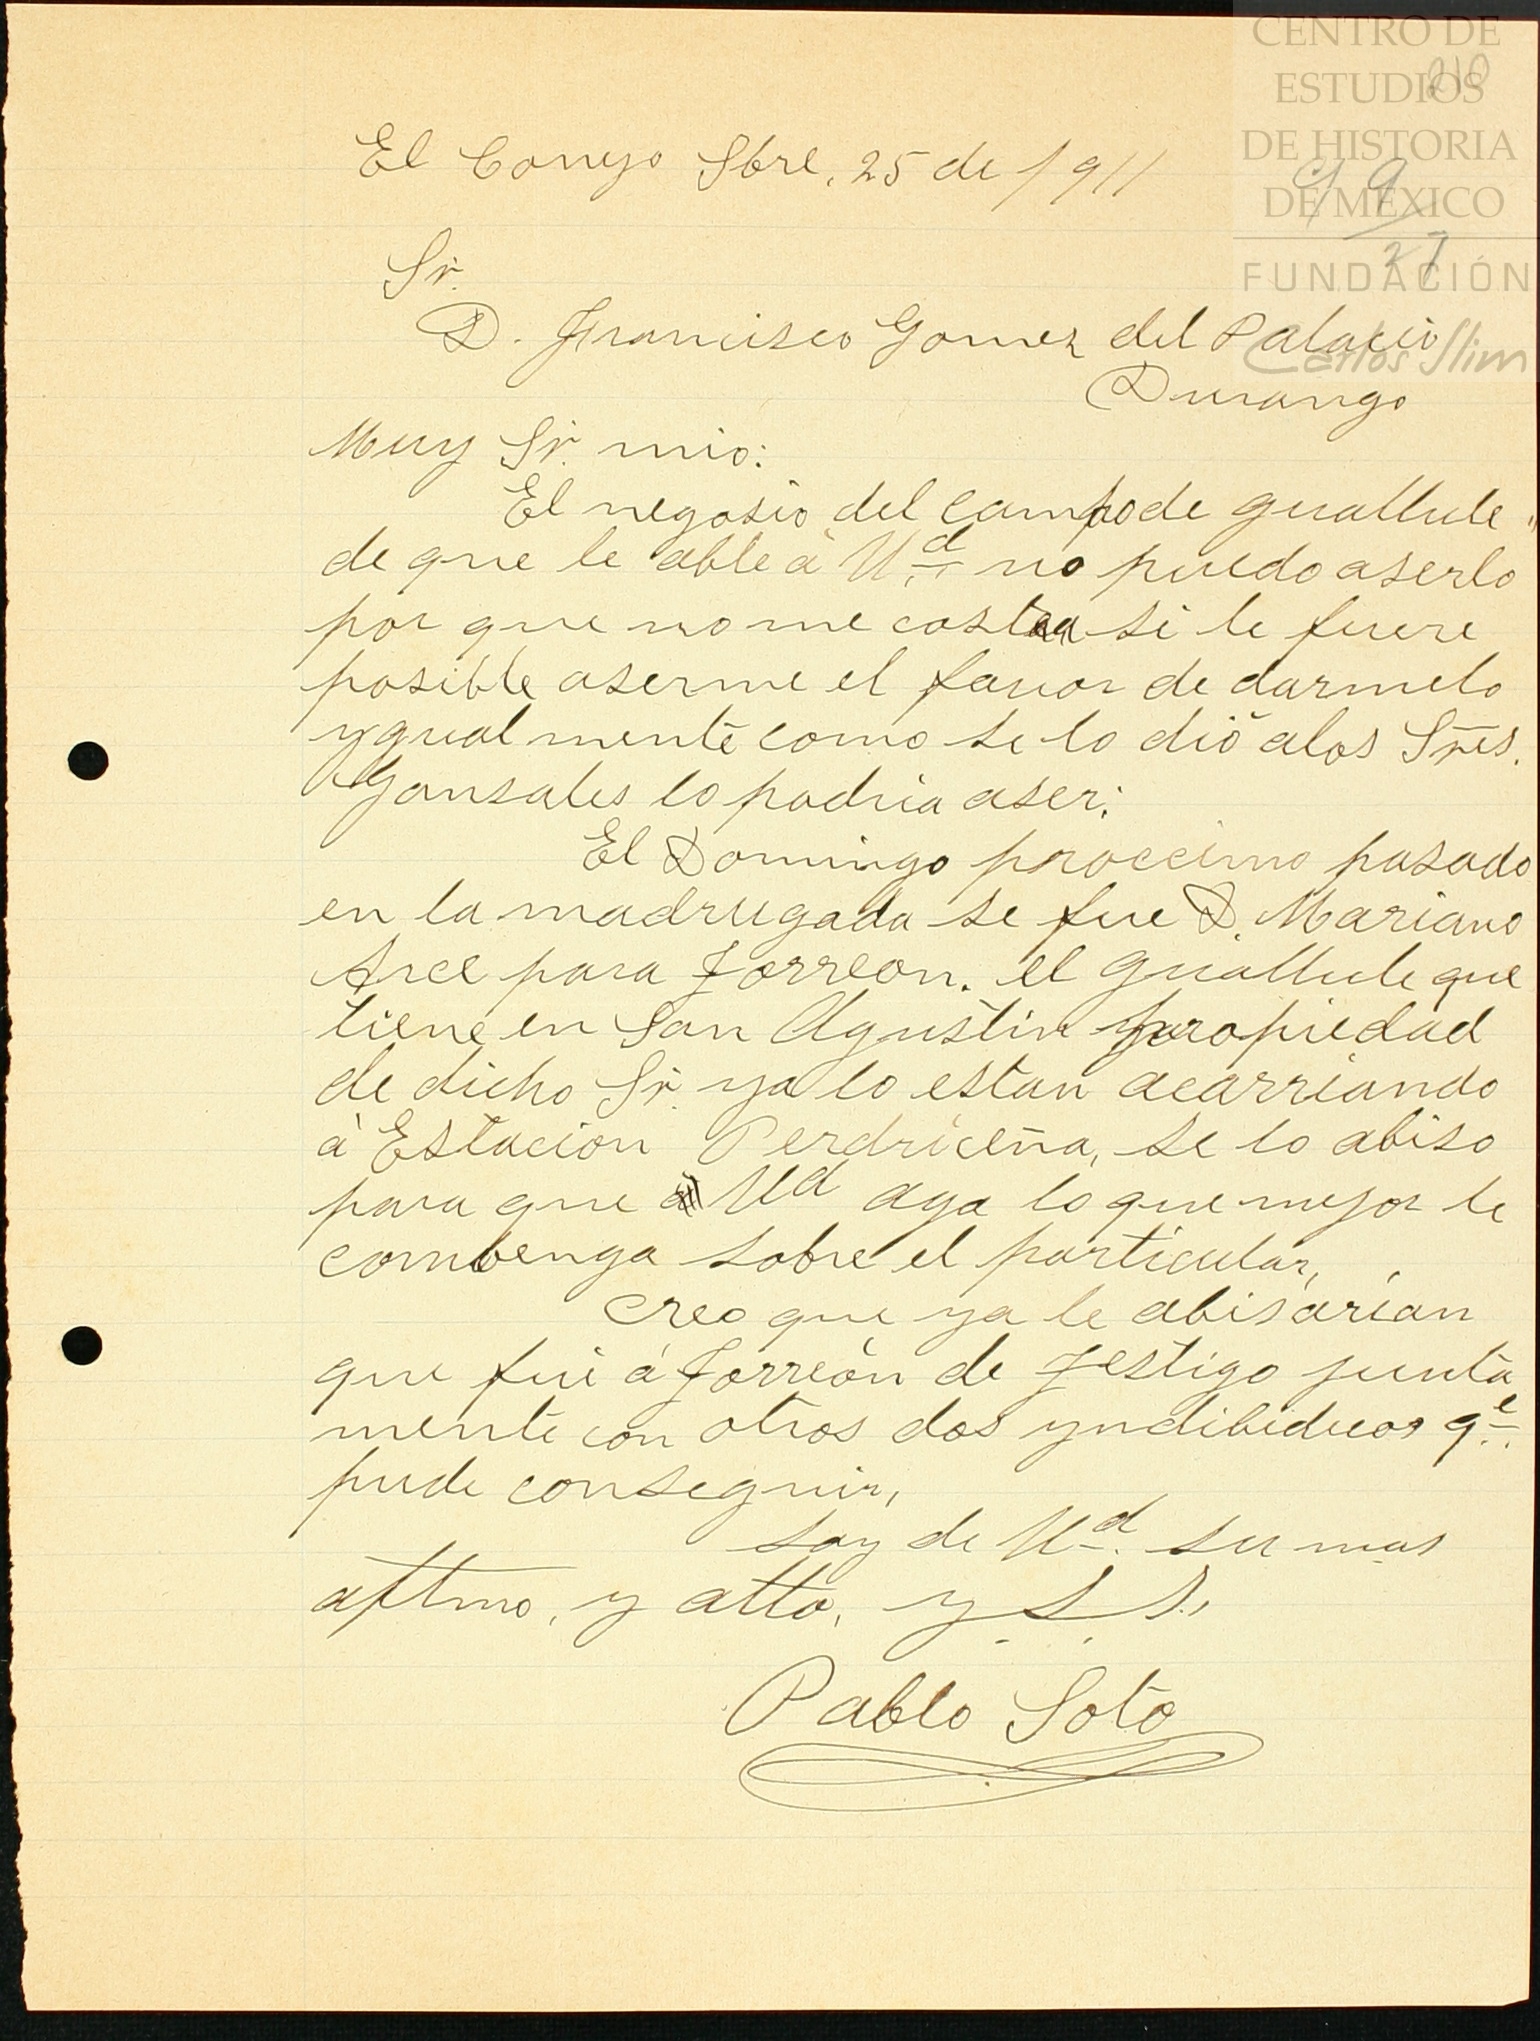 CENTRO DE
ESTUDIOS
DE HISTORIA
DE MÉXICO
FUNDACIÓN
Carlos Slim
210
99
27
El Conejo Sbre. 25 de 1911
Sr.
D. Francisco Gomez del Palacio
Durango
Muy Sr. mio:
El negosio del campo de guallule
de que le able á Ud. no puedo aserlo
por que no me costea si le fuere
posible aserme el favor de darmelo
ygual mente como se lo dió a los Sres.
Gonsales lo podria aser;
El Domingo proccimo pasado
en la madrugada se fue D. Mariano
Arce para Torreon. el guallule que
tiene en San Agustin propiedad
de dicho Sr. ya lo estan acarriando
á Estacion Perdriceña, se lo abiso
para que Ud aga lo que mejor le
combenga sobre el particular,
Creo que ya le abisarian
que fui á Torreón de Testigo junta
mente con otros dos yndibiduos qe.
pude conseguir,
Soy de Ud. su mas
aftmo, y atto, y S. S.,
Pablo Soto